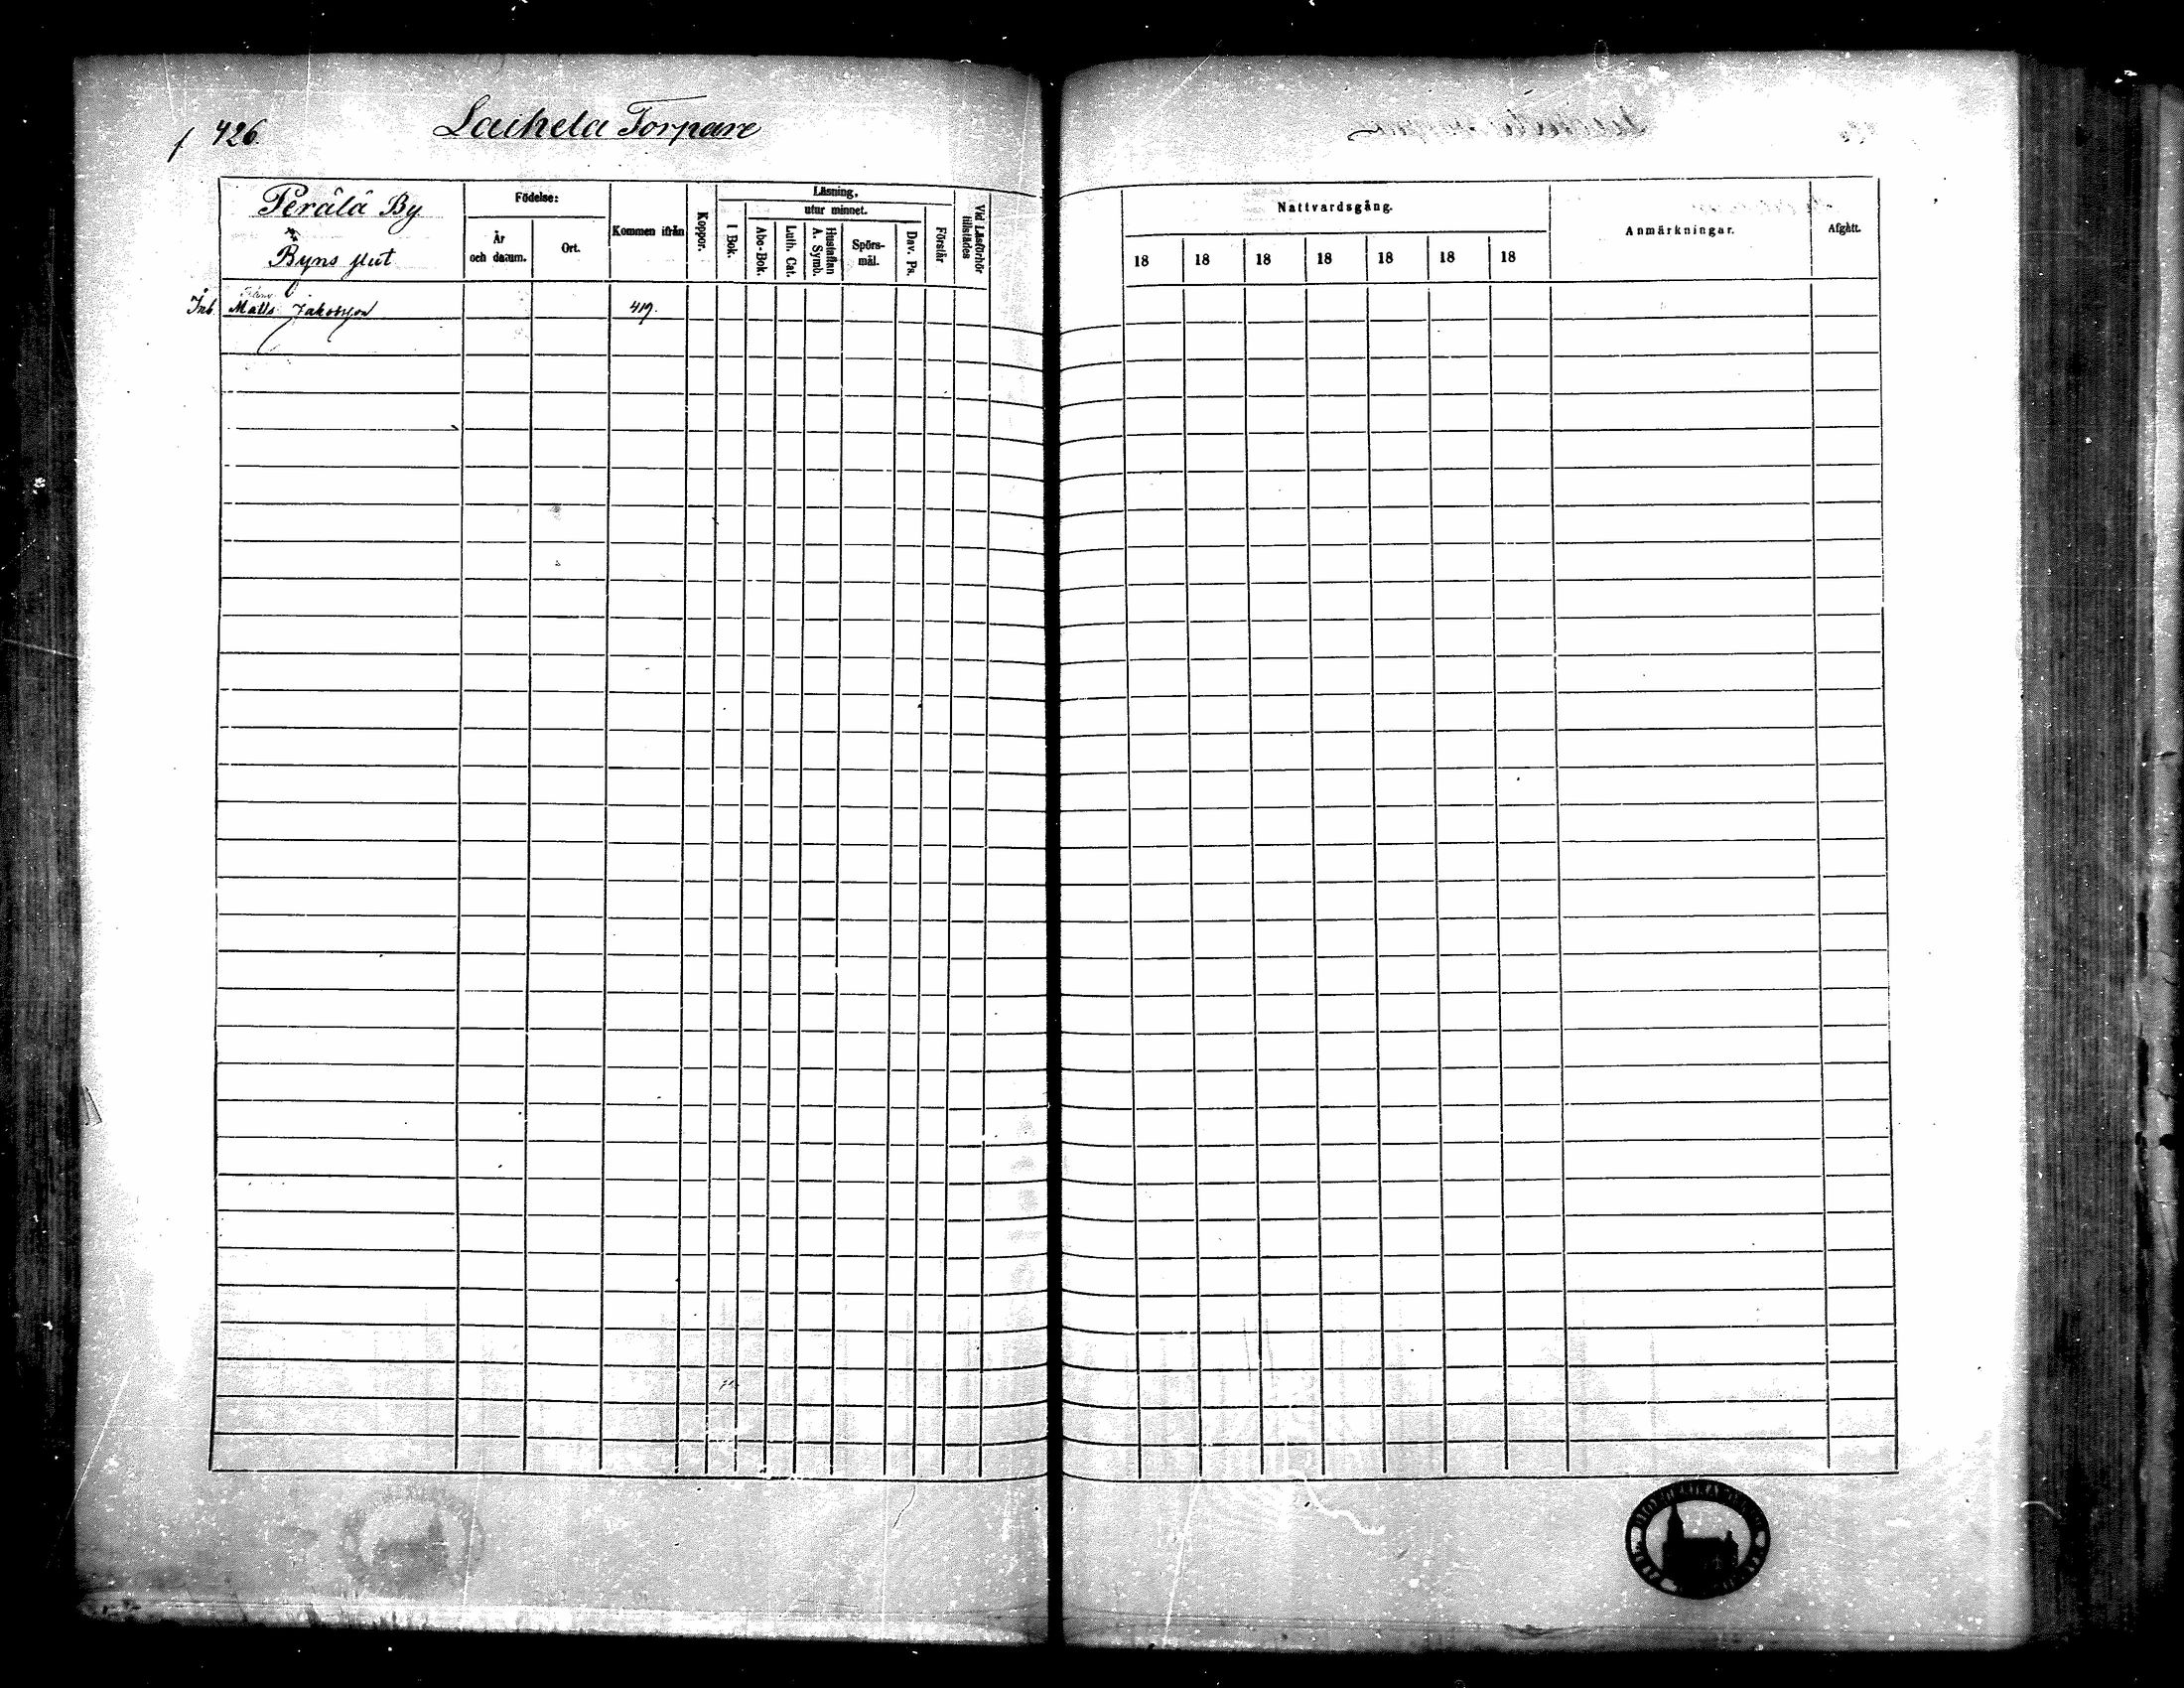 426.
Laihela Torpare
Perälä By
Byns slut
Födelse:
År
och datum.
Ort.
Kommen ifrån
Koppor.
Läsning,
utur minnet.
I Bok.
Abc-Bok.
Luth. Cat.
Hustaflan
A. Symb.
Spörs-
mål.
Dav. Ps.
Förstår
Vid Läsförhör
tillstädes
Nattvardsgång.
18 18 18 18 18 18 18
Anmärkningar.
Afgått.
Inh Matts Jakobsson 419.